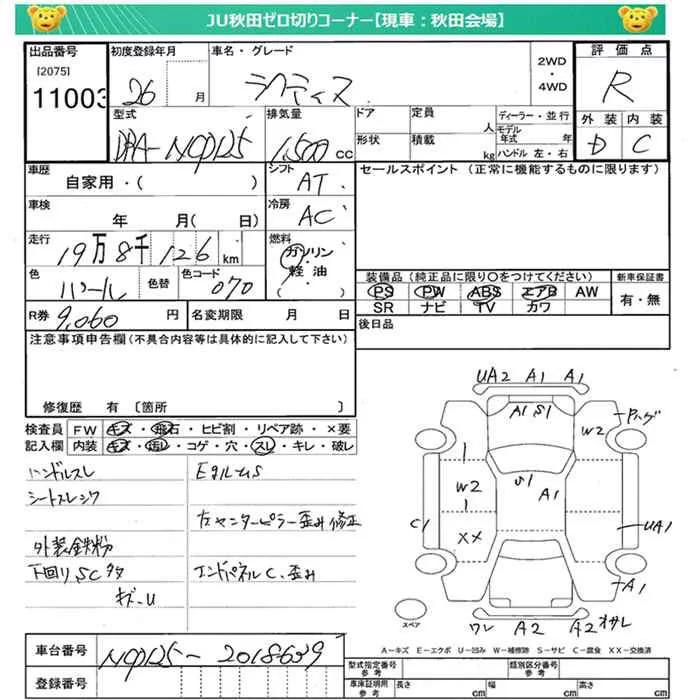 JU秋田ゼロ切りコーナー【現車：秋田会場】
出品番号 初度登録年月 車名・グレード 2WD・4WD 評価点
[2075]
11003 26 月 ラクティス R
型式 排気量 ドア 定員 人 ディーラー・並行 外装 内装
DBA-NCP125 1,500 cc 形状 積載 kg モデル年式 年 ハンドル 左・右 D C
車歴 シフト セールスポイント（正常に機能するものに限ります）
自家用・（ ） AT
車検 冷房
年 月（ 日） AC
走行 燃料
19万8千126 km ガソリン
軽油
色 色替 色コード 装備品（純正品に限り○をつけてください） 新車保証書
パール 070 PS PW ABS エアB AW 有・無
SR ナビ TV カワ
R券 9,060 円 名変期限 月 日 後日品
注意事項申告欄（不具合内容等は具体的に記入して下さい）
修復歴 有 〔箇所 〕
検査員 FW キズ・飛石・ヒビ割・リペア跡・×要
記入欄 内装 キズ・汚レ・コゲ・穴・スレ・キレ・破レ
ハンドルスレ
シートスレシワ
外装鉄粉
下回りSCサタ
キズ-U
左センターピラー歪み修正
エンドパネルC、歪み
UA2 A1 A1
A1 S1
W2
W2
S1
A1
C1
XX
UA1
A1
ワレ A2 A2 オサレ
スペア
A－キズ E－エクボ U－凹み W－補修跡 S－サビ C－腐食 XX－交換済
車台番号 NCP125-2018639
登録番号
型式指定番号 参考 類別区分番号 参考
車庫証明用 参考 長さ cm 幅 cm 高さ cm